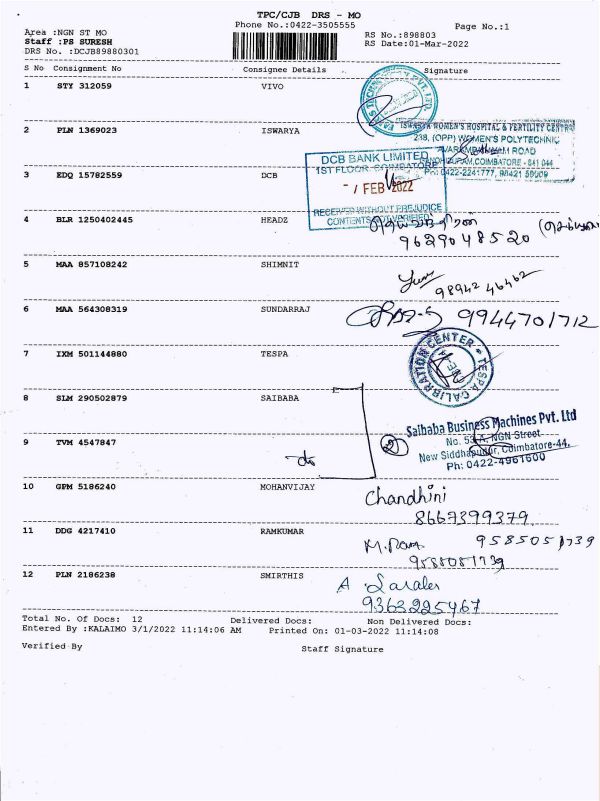 TPC/CJB DRS - MO
Phone No.:0422-3505555
Page No.:1
Area :NGN ST MO
RS No.:898803
Staff :PB SURESH
RS Date:01-Mar-2022
DRS No. :DCJB89880301
S No Consignment No Consignee Details Signature
1 STY 312059 VIVO
PVT. LTD.
2 PLN 1369023 ISWARYA
ISWARYA WOMEN'S HOSPITAL & FERTILITY CENTRE
238, (OPP) WOMEN'S POLYTECHNIC
ROAD
COIMBATORE - 641 044
Ph: 0422-2241777, 98421 59009
3 EDQ 15782559 DCB
DCB BANK LIMITED
1ST FLOOR, COIMBATORE
- 1 FEB 2022
RECEIVED WITHOUT PREJUDICE
CONTENTS NOT VERIFIED
4 BLR 1250402445 HEADZ
9629048520
5 MAA 857108242 SHIMNIT
98942 46462
6 MAA 564308319 SUNDARRAJ
9944701712
7 IXM 501144880 TESPA
TESPA CALIBRATION CENTER
8 SLM 290502879 SAIBABA
Saibaba Business Machines Pvt. Ltd
No. 53-A, NGN Street
New Siddhapudur, Coimbatore-44.
Ph: 0422-4961600
2
9 TVM 4547847
do
10 GPM 5186240 MOHANVIJAY
Chandhini
8667399379
11 DDG 4217410 RAMKUMAR
M.Ram 9585051739
9585051739
12 PLN 2186238 SMIRTHIS
A
9363225467
Total No. Of Docs: 12 Delivered Docs: Non Delivered Docs:
Entered By :KALAIMO 3/1/2022 11:14:06 AM Printed On: 01-03-2022 11:14:08
Verified By Staff Signature